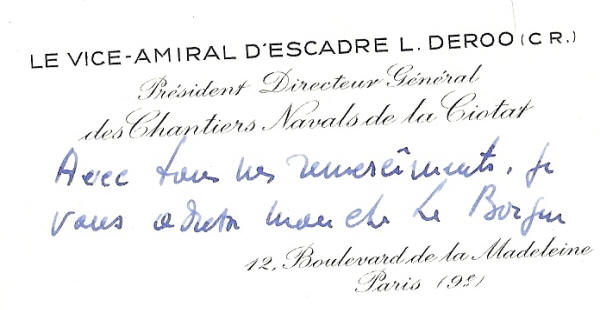 LE VICE-AMIRAL D'ESCADRE L. DEROO (C R.)
Président Directeur Général
des Chantiers Navals de la Ciotat
Avec tous mes remerciements, je
vous
12, Boulevard de la Madeleine
Paris (9e)